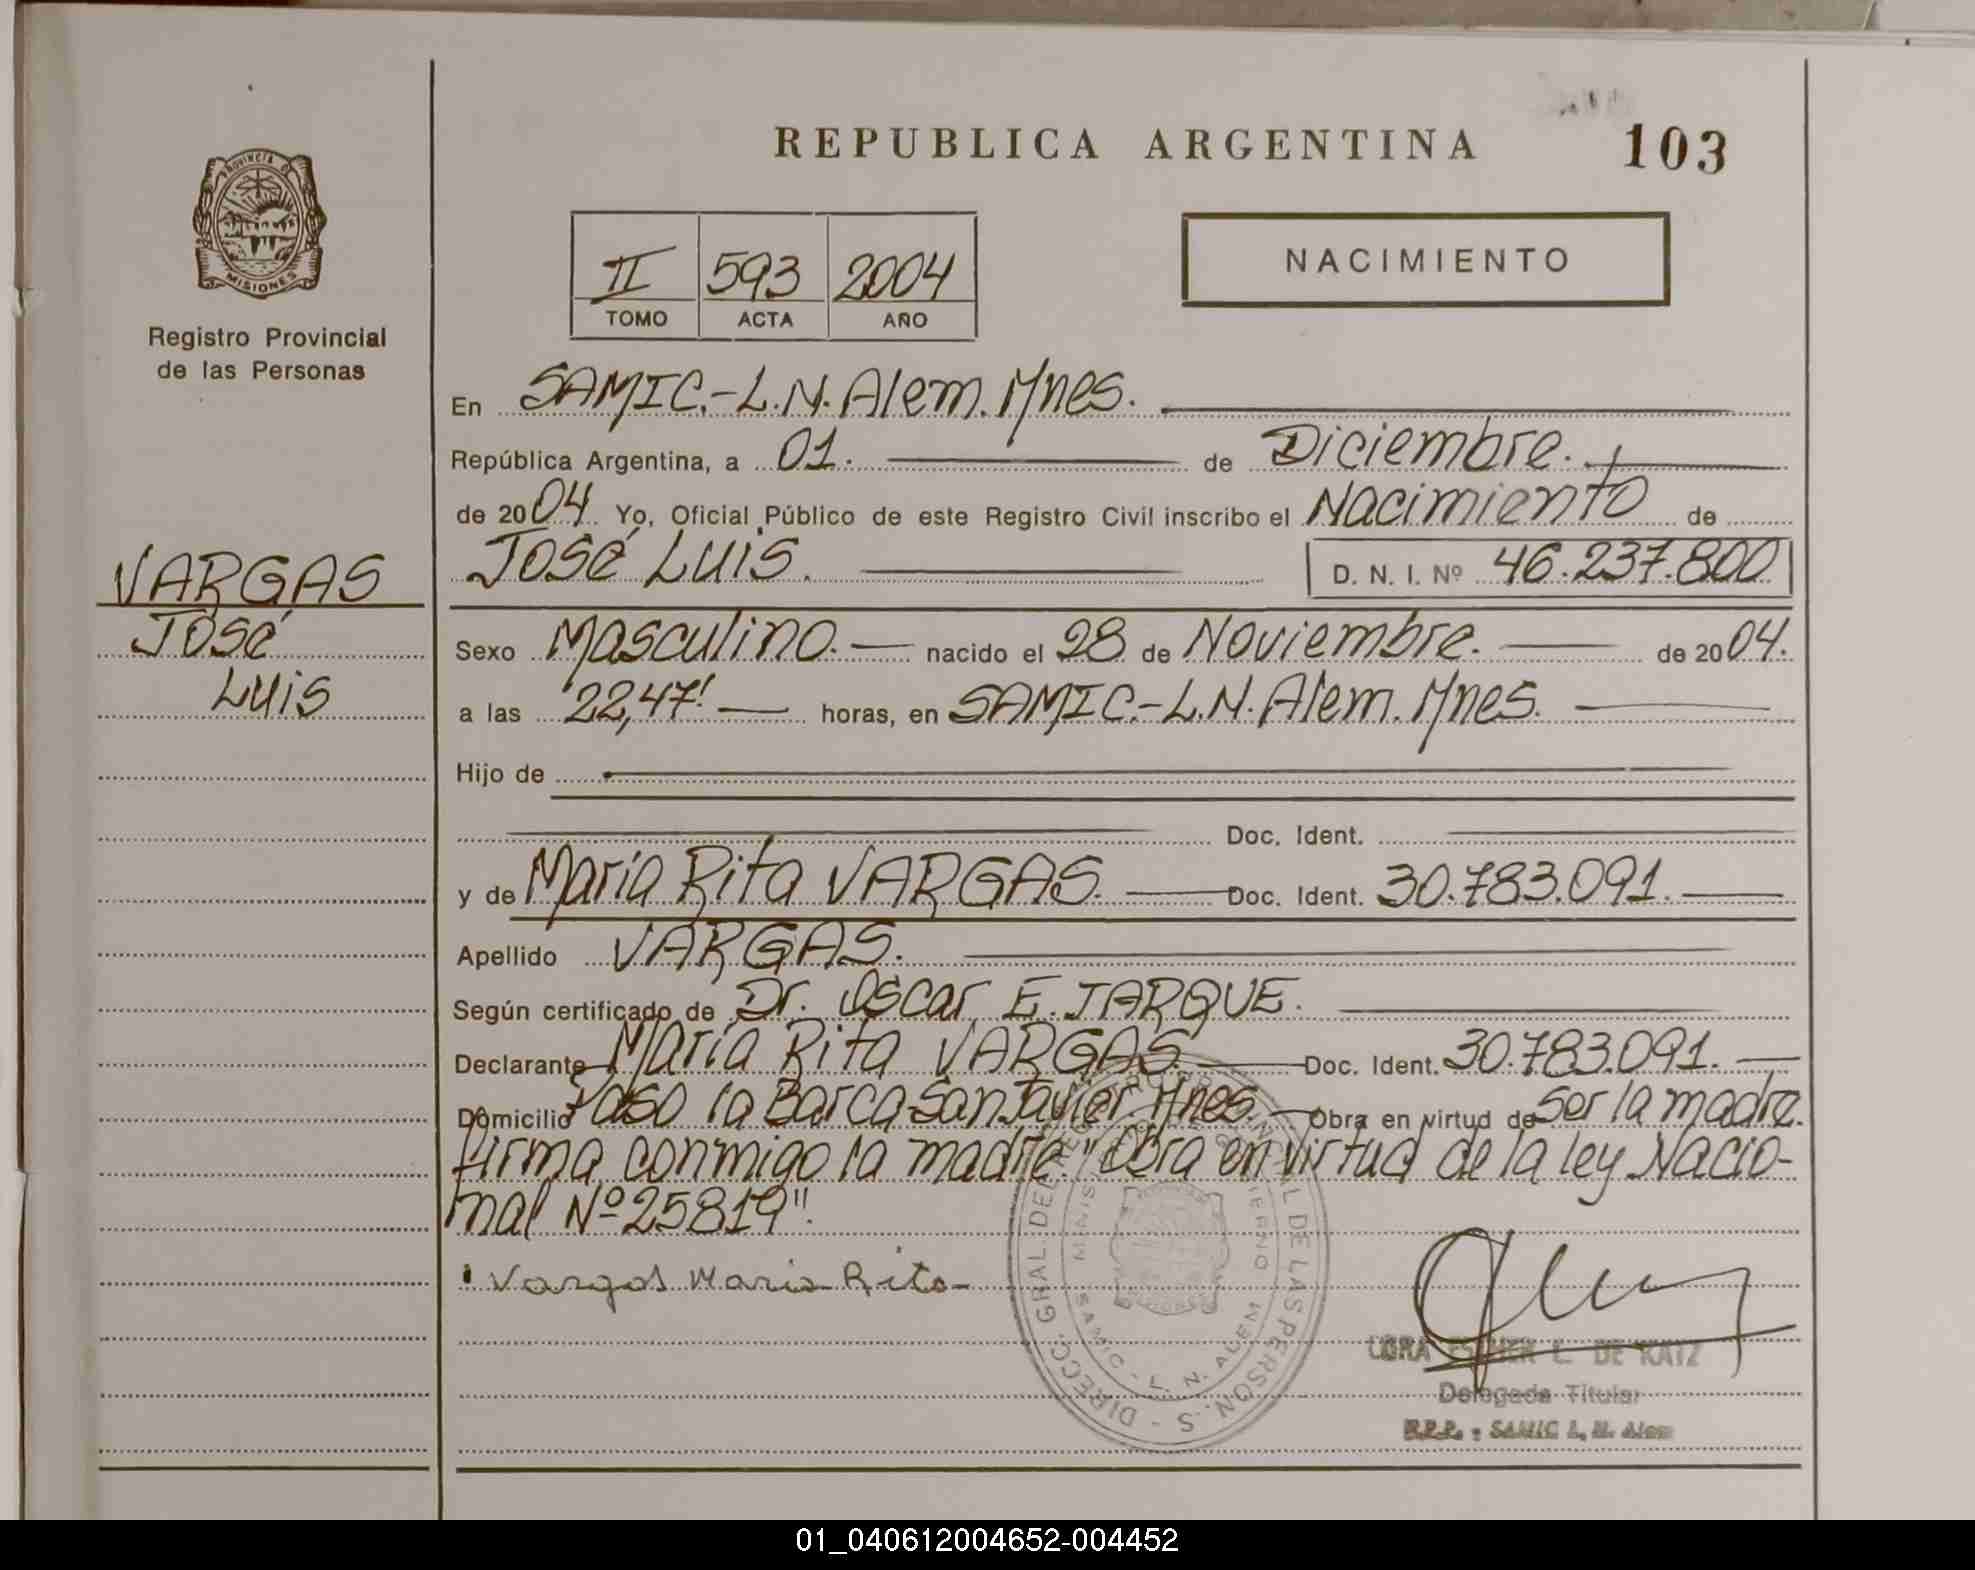 REPUBLICA ARGENTINA
103
PROVINCIA DE
MISIONES
Registro Provincial
de las Personas
II 593 2004
TOMO ACTA AÑO
NACIMIENTO
En SAMIC.-L.N.Alem.Mnes.
República Argentina, a 01. de Diciembre.
de 2004 Yo, Oficial Público de este Registro Civil inscribo el Nacimiento de
José Luis. D. N. I. Nº 46.237.800
VARGAS
José
Luis
Sexo Masculino. nacido el 28 de Noviembre. de 2004.
a las 22,47' horas, en SAMIC.-L.N.Alem.Mnes.
Hijo de
Doc. Ident.
y de María Rita VARGAS. Doc. Ident. 30.783.091.
Apellido VARGAS.
Según certificado de Dr. Oscar E. JARQUE.
Declarante María Rita VARGAS. Doc. Ident. 30.783.091.
Domicilio Paso la Barca-San Javier. Mnes. Obra en virtud de Ser la madre.
firma conmigo la madre. "Obra en virtud de la ley Nacio-
nal Nº 25819".
Vargas Maria Rita
DIRECC. GRAL. DEL REGISTRO PROVINCIAL DE LAS PERSONAS
SAMIC - L. N. ALEM
L. DE KATZ
Delegada Titular
R.P.P. - SAMIC L. N. Alem
01_040612004652-004452